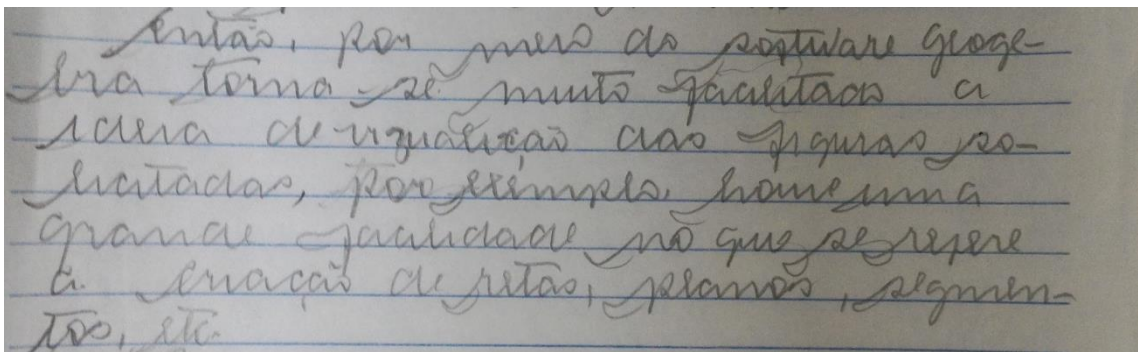 então, por meio do software geoge-
bra torna-se muito facilitado a
ideia de vizualização das figuras so-
licitadas, por exemplo, houve uma
grande facilidade no que se refere
a criação de retas, planos, segmen-
tos, etc.